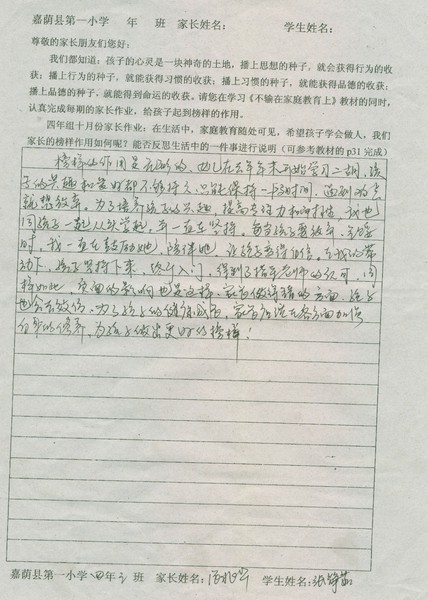 嘉荫县第一小学 年 班 家长姓名: 学生姓名:
尊敬的家长朋友们您好:
我们都知道:孩子的心灵是一块神奇的土地,播上思想的种子,就会获得行为的收
获;播上行为的种子,就能获得习惯的收获;播上习惯的种子,就能获得品德的收获;
播上品德的种子,就能得到命运的收获。请您在学习《不输在家庭教育上》教材的同时,
认真完成每期的家长作业,给孩子起到榜样的作用。
四年组十月份家长作业:在生活中,家庭教育随处可见,希望孩子学会做人,我们
家长的榜样作用如何呢?能否反思生活中的一件事进行说明(可参考教材的 p31 完成)
榜样的作用是无穷的,女儿在去年年末开始学习二胡,孩
子的兴趣和爱好都不能持久,只能保持一段时间,遇到困难
就想放弃。为了培养孩子的兴趣,提高专注力和耐性,我也
同孩子一起从头学起,并一直在坚持。每当孩子要放弃
时,我一直在鼓励她,陪伴她,让孩子变得自信。在我的带
动下,孩子坚持下来,终于入门,得到了指导老师的认可,同
样如此,负面的影响也是这样,家长做得错的方面,孩子
也会去效仿。为了孩子的健康成长,家长应该在各方面加强
自身的修养,为孩子做出更好的榜样!
嘉荫县第一小学 四年 班 家长姓名: 学生姓名: